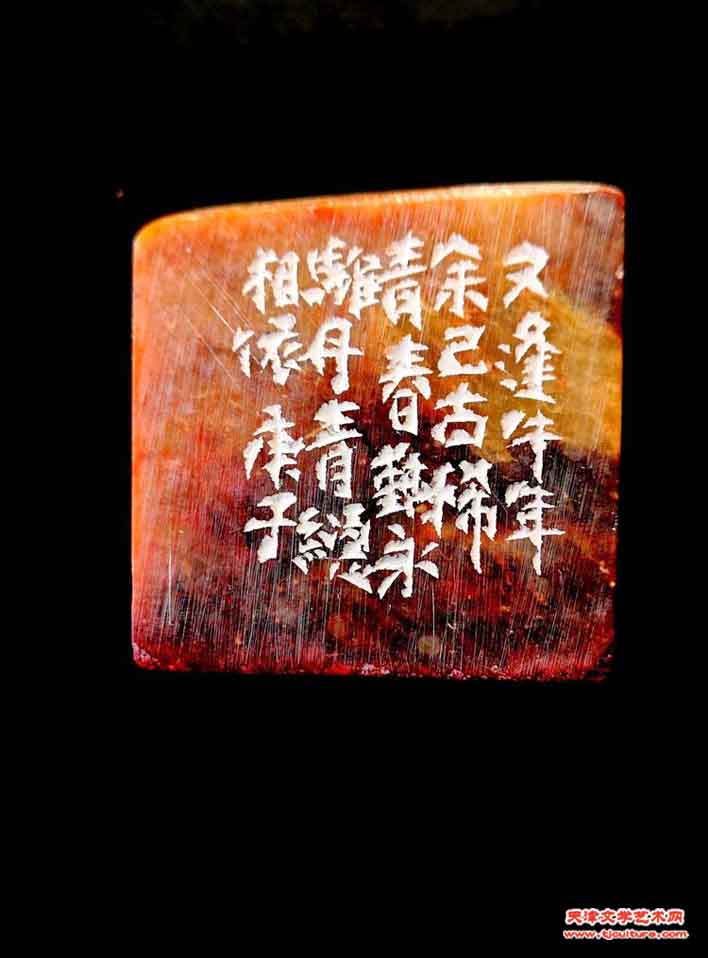 又逢牛年
余已古稀
青春難永
離丹青總
相依庚子
天津文学艺术网
www.tjculture.com